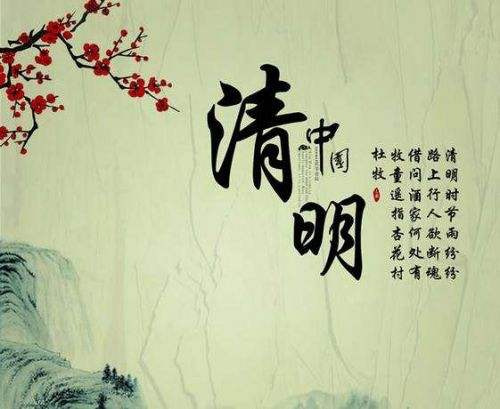 清明
中國
清明时节雨纷纷
路上行人欲断魂
借问酒家何处有
牧童遥指杏花村
杜牧